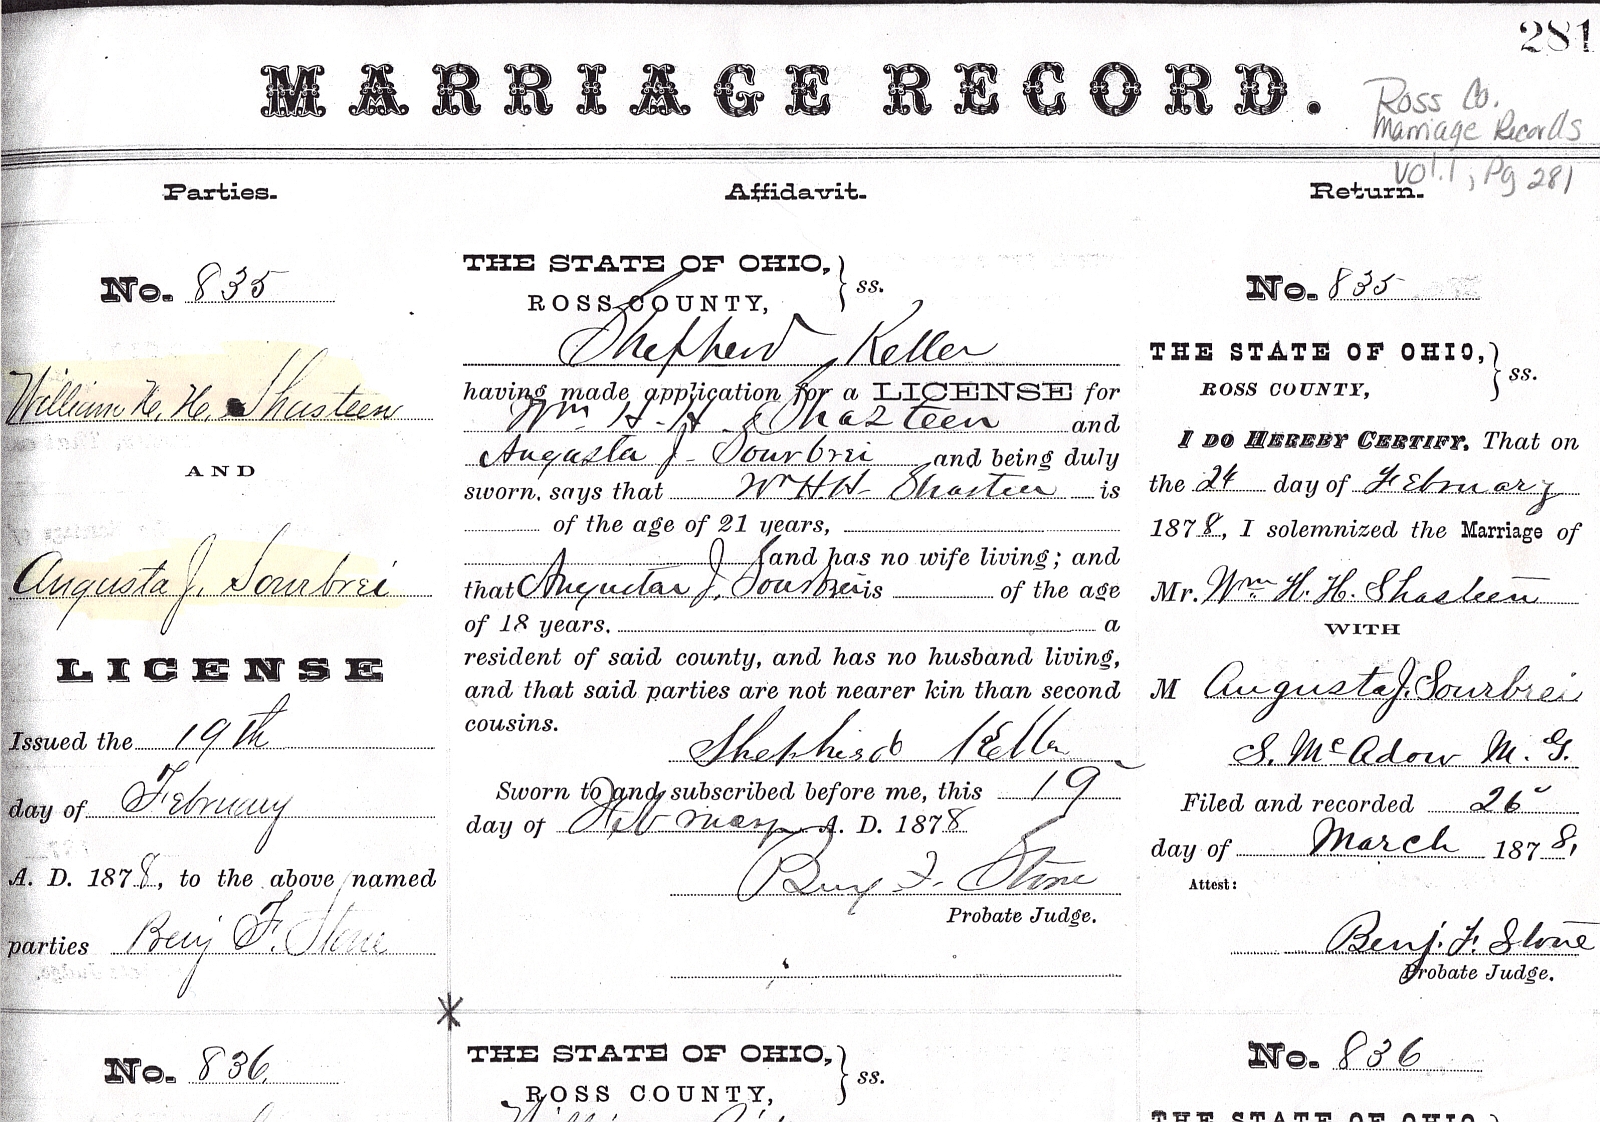 281
MARRIAGE RECORD.
Ross Co.
Marriage Records
Vol. 1, Pg 281
Parties.
No. 835
William H. H. Shasteen
AND
Augusta J. Sourbrei
LICENSE
Issued the 19th
day of February
A. D. 1878, to the above named
parties Benj F. Stone
No. 836
Affidavit.
THE STATE OF OHIO, } ss.
ROSS COUNTY,
Shepherd Keller
having made application for a LICENSE for
Wm H. H. Shasteen and
Augusta J. Sourbrei and being duly
sworn, says that Wm H H. Shasteen is
of the age of 21 years,
and has no wife living; and
that Augusta J. Sourbrei is of the age
of 18 years, a
resident of said county, and has no husband living,
and that said parties are not nearer kin than second
cousins.
Shepherd Keller
Sworn to and subscribed before me, this 19
day of February A. D. 1878
Benj F. Stone
Probate Judge.
THE STATE OF OHIO, } ss.
ROSS COUNTY,
William
Return.
No. 835
THE STATE OF OHIO, } ss.
ROSS COUNTY,
I DO HEREBY CERTIFY, That on
the 24 day of February
1878, I solemnized the Marriage of
Mr. Wm H. H. Shasteen
WITH
M Augusta J. Sourbrei
S. McAdow M. G.
Filed and recorded 26"
day of March 1878,
Attest:
Benj. F. Stone
Probate Judge.
No. 836
THE STATE OF OHIO,